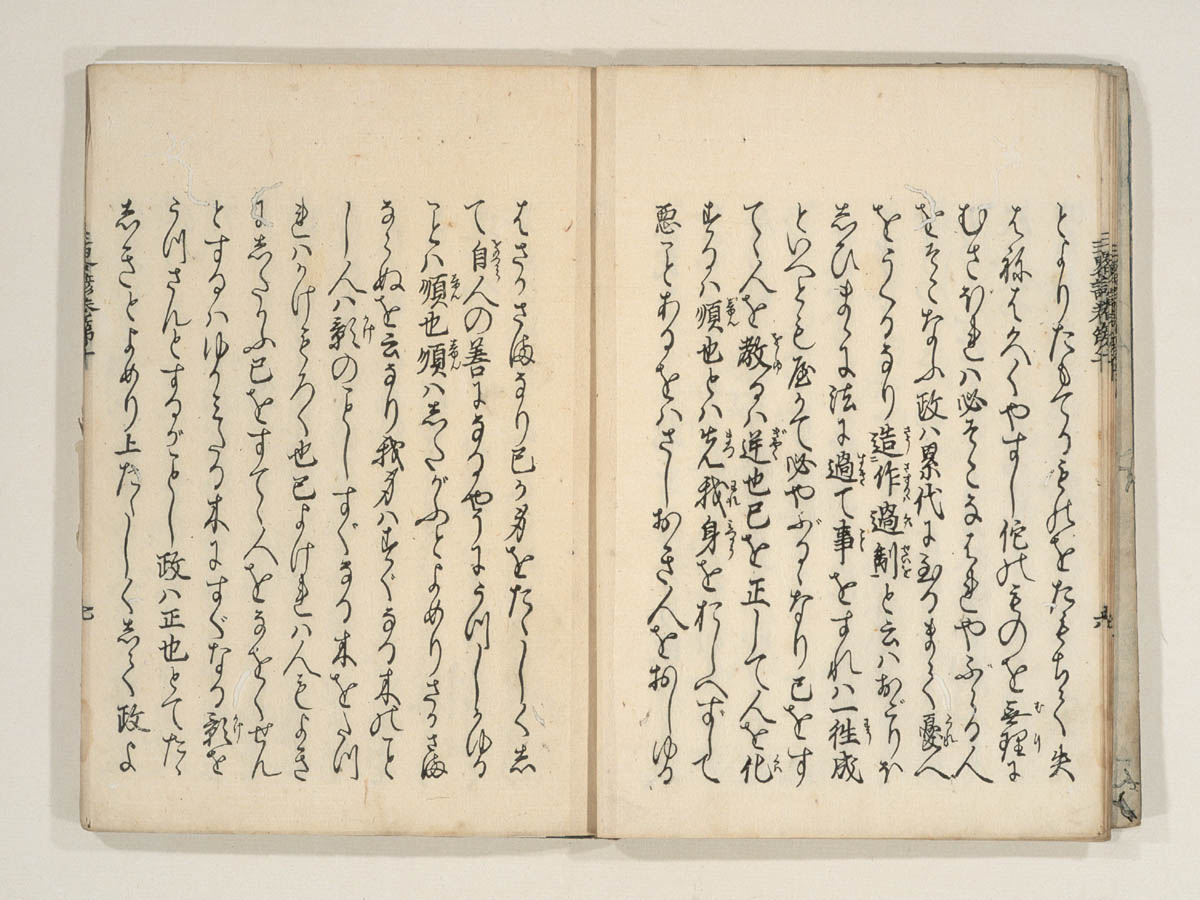 とよりたもてるものをたもちて失
はねはかへつてやすし佗のものを無理に
むさぼれハ必そこなはれやぶるゝ人
をそこなふ政ハ累代に至るまて憂へ
をうくるなり造作過制と云ハおごりを
しひまゝに法に過て事をすれハ一往成
といへとも屋かて必やぶるゝなり己をす
てゝ人を教るハ逆也己を正して人を化
するハ順也とハ先我身をおしへずして
悪ことあるをハさしおき人をおしゆる
はさかさまなり己か身をたゝしくし
て自人の善になるやうにうつしかゆる
ことハ順也順ハしたがふとよめりさかさま
ならぬを云なり我身ハすぐなる木のこと
し人ハ影のことしすぐなる木をたつ
れハかけもろく也己よけれハ人もよき
にしたかふ己をすてゝ人をなをくせん
とするハゆかミたる木にすぐなる影を
うつさんとするがことし政ハ正也とてたゝ
しきとよめり上たゝしくして政よ